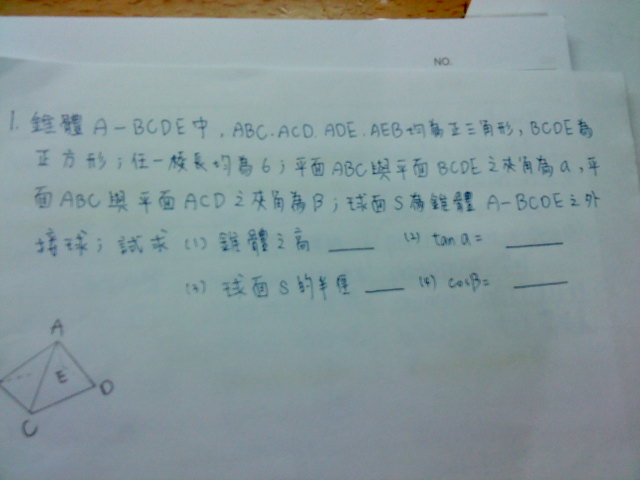 NO.
1. 錐體 A-BCDE中，ABC.ACD.ADE.AEB均為正三角形，BCDE為
正方形；任一稜長均為6；平面ABC與平面BCDE之夾角為α，平
面ABC與平面ACD之夾角為β；球面S為錐體 A-BCDE之外
接球；試求 (1) 錐體之高 ____ (2) tanα= ____
(3) 球面S的半徑 ____ (4) cosβ= ____
A
E
D
C